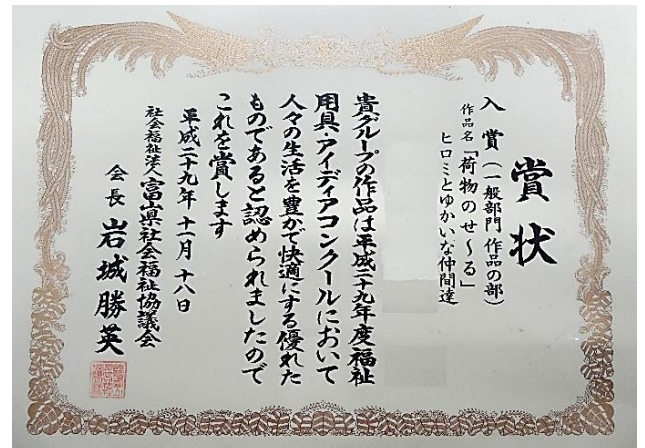 賞状
入賞(一般部門 作品の部)
作品名「荷物のせ~る」
ヒロミとゆかいな仲間達
貴グループの作品は平成二十九年度福祉
用具・アイディアコンクールにおいて
人々の生活を豊かで快適にする優れた
ものであると認められましたので
これを賞します
平成二十九年 十一月 十八日
社会福祉法人 富山県社会福祉協議会
会長 岩城勝英